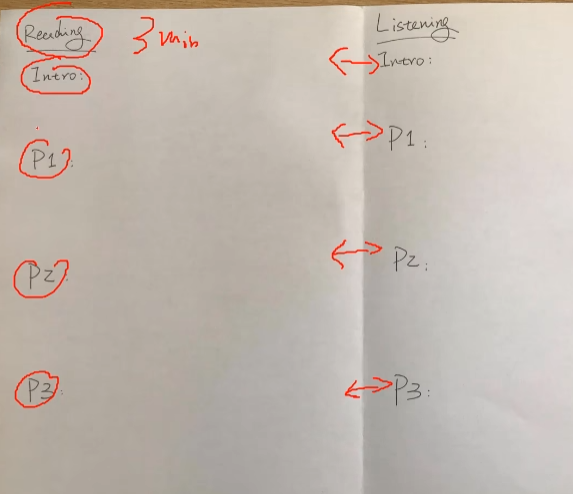 Reading 3 min
Intro:
P1:
P2:
P3:
Listening
Intro:
P1:
P2:
P3: